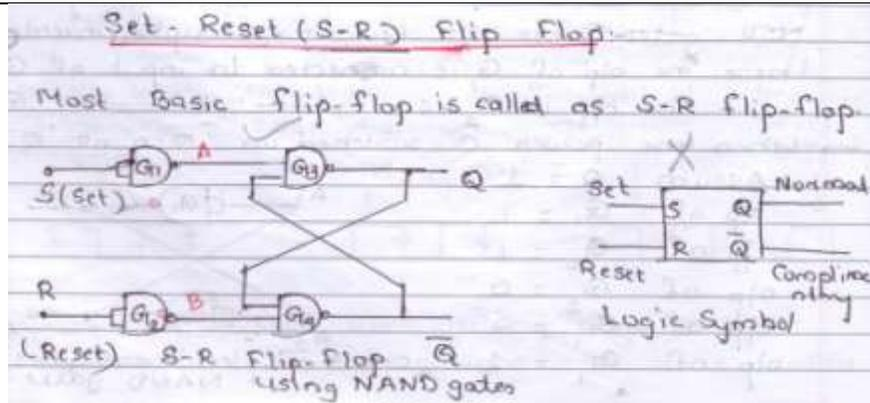 Set- Reset (S-R) Flip Flop.
Most Basic flip-flop is called as S-R flip-flop.
A
G1
G3
Q
S(Set)
R
B
G2
G4
Q̅
(Reset)
S-R Flip-Flop
using NAND gates
Set
Normal
S Q
R Q̅
Reset
Complime
ntry
Logic Symbol